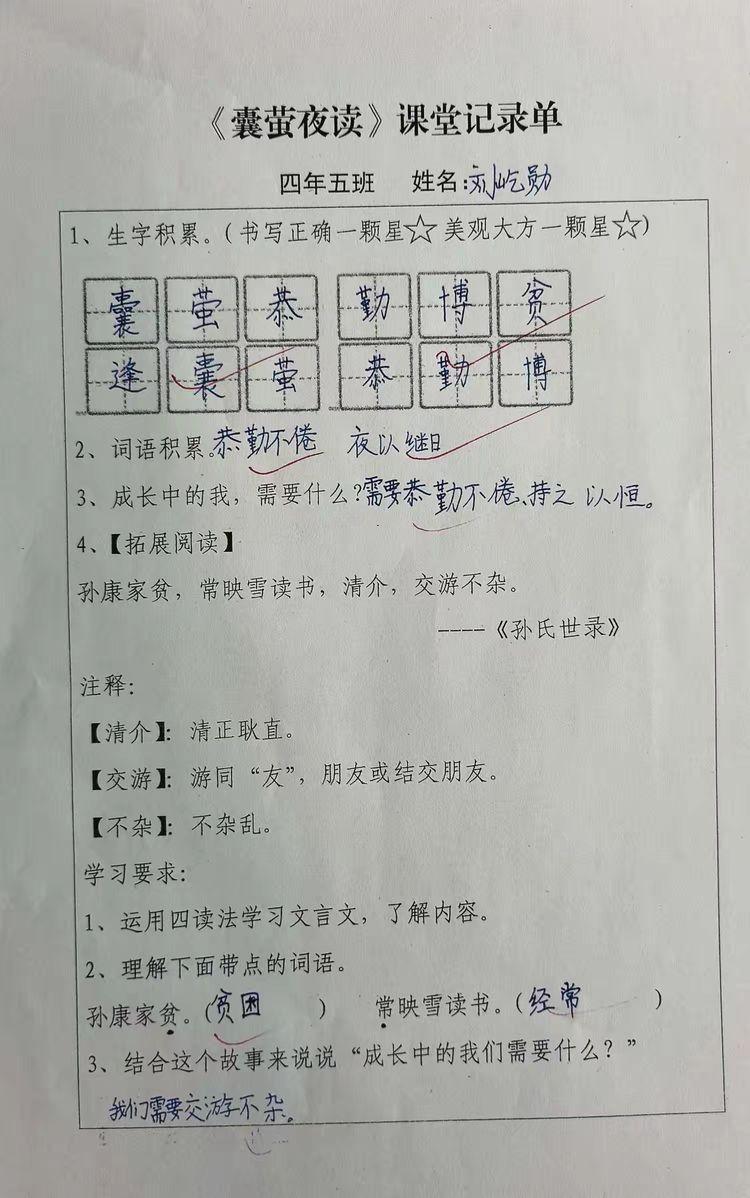 《囊萤夜读》课堂记录单
四年五班 姓名:刘屹勋
1、生字积累。(书写正确一颗星☆美观大方一颗星☆)
囊 萤 恭 勤 博 贫
逢 囊 萤 恭 勤 博
2、词语积累。恭勤不倦 夜以继日
3、成长中的我，需要什么?需要恭勤不倦、持之以恒。
4、【拓展阅读】
孙康家贫，常映雪读书，清介，交游不杂。
----《孙氏世录》
注释:
【清介】: 清正耿直。
【交游】: 游同“友”，朋友或结交朋友。
【不杂】: 不杂乱。
学习要求:
1、运用四读法学习文言文，了解内容。
2、理解下面带点的词语。
孙康家贫。(贫困) 常映雪读书。(经常)
3、结合这个故事来说说“成长中的我们需要什么？”
我们需要交游不杂。